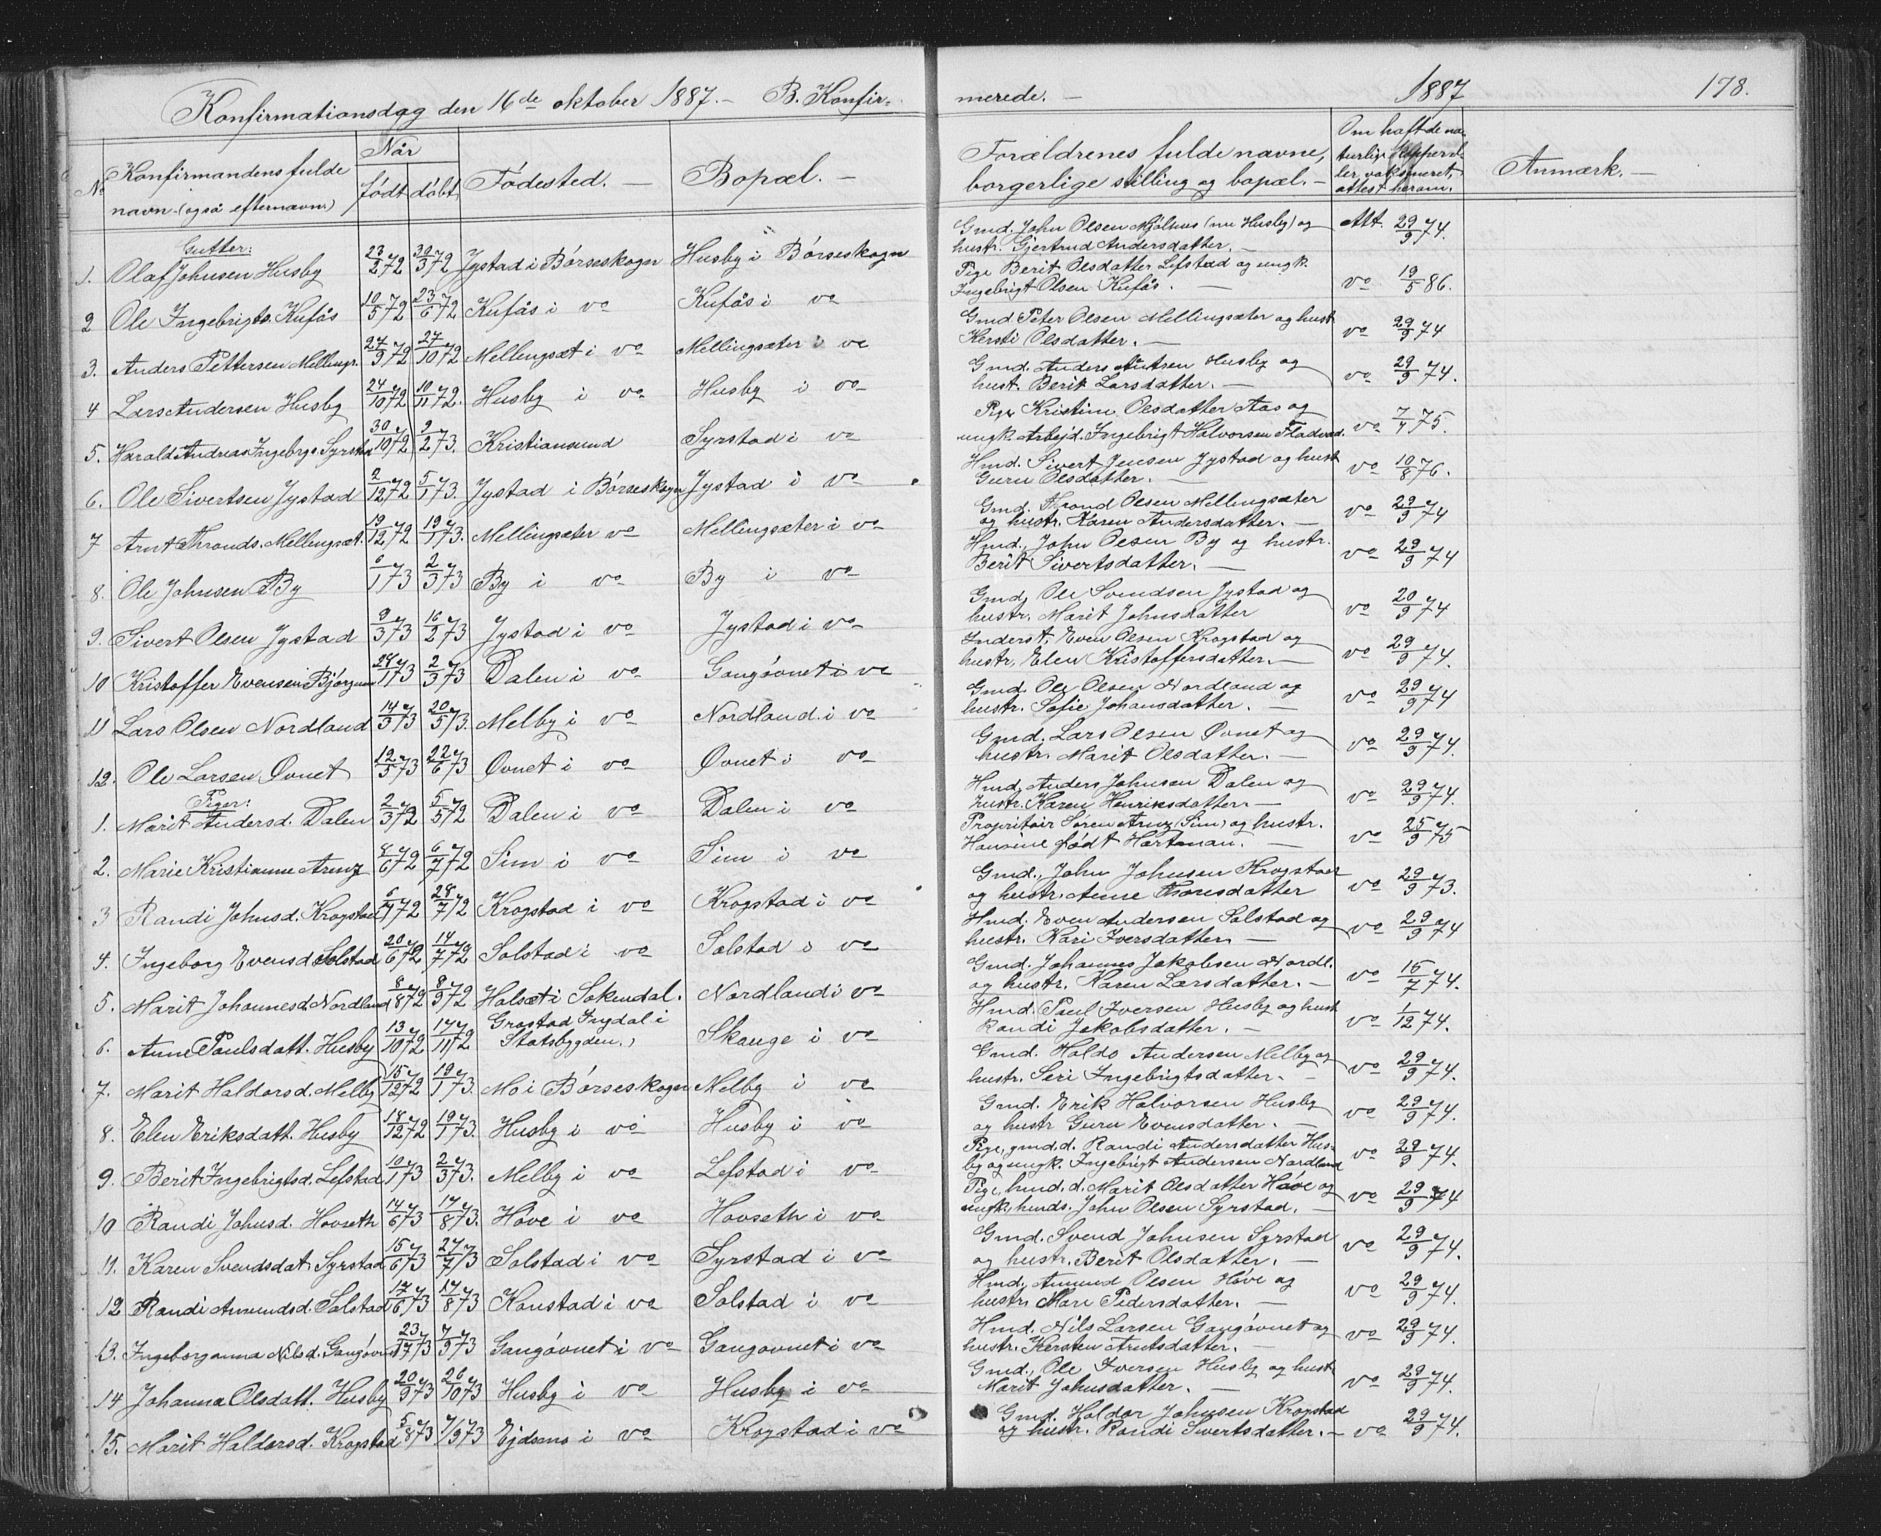 Konfirmationsdag den 16de oktober 1887.- B. Konfir-
merede. - 1887 178.
No Konfirmandens fulde navn (også efternavn) Når født døbt Fødested. - Bopæl. -
Forældrenes fulde navne, borgerlige stilling og bopæl. - Om haft de naturlige kopper eller vaksineret, attest herom. Anmærk. -
Gutter:
1. Olaf Johnsen Husby 23/2 72 30/3 72 Jystad i Børseskogn Husby i Børseskogn
Gmd. John Olsen Mjølnes (nu Husby) og hustr. Gjertrud Andersdatter. - Att. 29/9 74.
2 Ole Ingebrigts. Kufås 10/5 72 23/6 72 Kufås i do Kufås i do
Pige Berit Olsdatter Lefstad og ungk. Ingebrigt Olsen Kufås. - do 19/5 86.
3. Anders Pettersen Mellingr. 24/9 72 27/10 72 Mellingsæt i do Mellingsæter i do
Gmd Peter Olsen Mellingsæter og hust Kersti Olsdatter. - do 29/9 74
4 Lars Andersen Husby 24/10 72 10/11 72. Husby i do Husby i do
Gmd. Anders Antsen Husby og hust. Berit Larsdatter. - do 29/9 74.
5. Harald Andreas Ingebrgs. Syrstad 30/10 72 9/2 73. Kristiansund Syrstad i do
Pige Kristine Olsdatter Aas og ungk. Arbejd. Ingebrigt Halvorsen Fladvad. do 7/4 75.
6. Ole Sivertsen Jystad 2/12 72 5/1 73. Jystad i Børseskogn Jystad i do
Hmd. Sivert Jensen Jystad og hust Guru Olsdatter. - do 10/8 76.
7 Arnt Thronds. Mellingsæt. 19/12 72 19/1 73. Mellingsæter do Mellingsæter i do
Gmd. Thrond Olsen Mellingsæter og hustr. Karen Andersdatter. - do 29/9 74
8. Ole Johnsen By 6/1 73 2/3 73 By i do By i do
Hmd. John Olsen By og hustr. Berit Sivertsdatter. - do 29/9 74
9. Sivert Olsen Jystad 9/3 73 16/2 73 Jystad i do Jystad i do
Gmd, Ole Svendsen Jystad og hustr. Marit Johnsdatter do 20/9 74
10 Kristoffer Evensen Bjørgum 28/1 73 2/3 73 Dalen i do Gangøvnet i do
Inderst, Even Olsen Krogstad og hustr, Elen Kristoffersdatter. - do 29/9 74.
11 Lars Olsen Nordland 14/3 73 20/5 73. Melby i do Nordland i do
Gmd. Ole Olsen Nordland og hustr. Sofie Johansdatter. - do 29/9 74
12. Ole Larsen Øvnet 12/5 73 22/6 73 Øvnet i do Øvnet i do
Gmd. Lars Olsen Øvnet og hustr. Marit Olsdatter. - do 29/9 74.
Piger:
1. Marit Andersd. Dalen 2/3 72 5/5 72 Dalen i do Dalen i do
Hmd, Anders Johnsen Dalen og hustr. Karen Henriksdatter. - do 29/9 74.
2. Marie Kristianne Arnz 8/6 72 6/7 72 Sim i do Sim i do
Propritær Søren Arnz (Sim) og hustr. Hansine født Hartman. - do 25/9 75
3 Randi Johnsd. Krogstad 28/7 72 Krogstad i do Krogstad i do
Gmd., John Johnsen Krogstad og hustr. Anne Thoresdatter do 29/9 73.
4. Ingeborg Evensd Solstad 20/6 72 14/7 72 Solstad i do Solstad i do
Hmd. Even Andersen Solstad og hustr. Kari Iversdatter. - do 29/9 74
5. Marit Johannesd. Nordland 8/8 72 8/9 72 Halsæt i Soknedal. Nordland i do
Gmd. Johannes Jakobsen Nordl. og hustr. Karen Larsdatter. - do 16/7 74.
6. Anne Paulsdatt. Husby 13/10 72 17/11 72 i Statsbygden. Skauge i do
Hmd. Paul Iversen Husby og hust Randi Jakobsdatter. - do 1/12 74.
7. Marit Haldorsd. Melby 15/12 72 19/1 73. Mo i Børseskogn Melby i do
Gmd. Haldo Andersen Melby og hustr. Seri Ingebrigtsdatter. - do 29/9 74.
8. Elen Eriksdatt. Husby 18/12 72 19/1 73. Husby i do Husby i do
Gmd. Erik Halvorsen Husby og hustr Guru Evensdatter. - do 29/9 74.
9. Berit Ingebrigtsd. Lefstad 10/1 73 2/3 73. Melby i do Lefstad i do
Pige, gmd.d. Randi Andersdatter Husby og ungk. Ingebrigt Andersen Nordland do 29/9 74.
10 Randi Johnsd. Hovseth 14/6 73 17/8 73. Hove i do Hovseth i do
Pige, hmd.d. Marit Olsdatter Hove og ungk. hmds. John Olsen Syrstad. - do 29/9 74
11. Karen Svendsdat Syrstad 15/6 73 27/7 73 Solstad i do Syrstad i do
Gmd. Svend Johnsen Syrstad og hustr. Berit Olsdatter. - do 29/9 74.
12 Randi Amundsd. Solstad 17/6 73 17/8 73 Konstad i do Solstad i do
Hmd, Amund Olsen Hove og hustr Mari Pedersdatter. - do 29/9 74.
13. Ingeborganna Nilsd. Gangøvnet 23/7 73 7/9 73 Gangøvnet i do Gangovnet i do
Hmd. Nils Larsen Gangøvnet og hustr. Kersten Arntsdatter. - do 29/9 74.
14 Johanna Olsdatt. Husby 20/9 73 26/10 73 Husby i do Husby i do
Gmd., Ole Iversen Husby og hust Marit Johnsdatter. - do 29/9 74.
15. Marit Haldorsd. Krogstad 5/8 73 7/9 73 Ejdsmo i do Krogstad i do
Gmd. Haldor Johnsen Krogstad og hustr. Randi Sivertsdatter. - do 29/9 74.